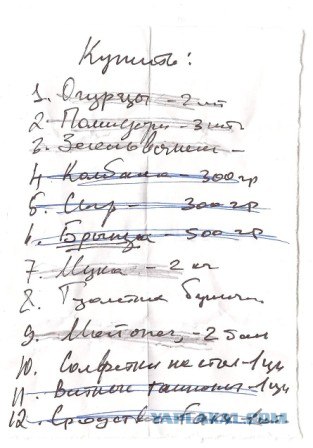 Купить:
1. Огурцы - 2 шт
2 Помидоры - 3 шт
3. Зелень -
4 Колбаса - 300 гр
5. Сыр - 300 гр
6. Брынза - 500 гр
7. Мука - 2 кг
8. Туалетная бумага
9. Майонез, - 2 бан
10. Салфетки на стол - 1 уп
11. Ватные тампоны - 1 уп
12. Средство
YAPLAKAL.COM